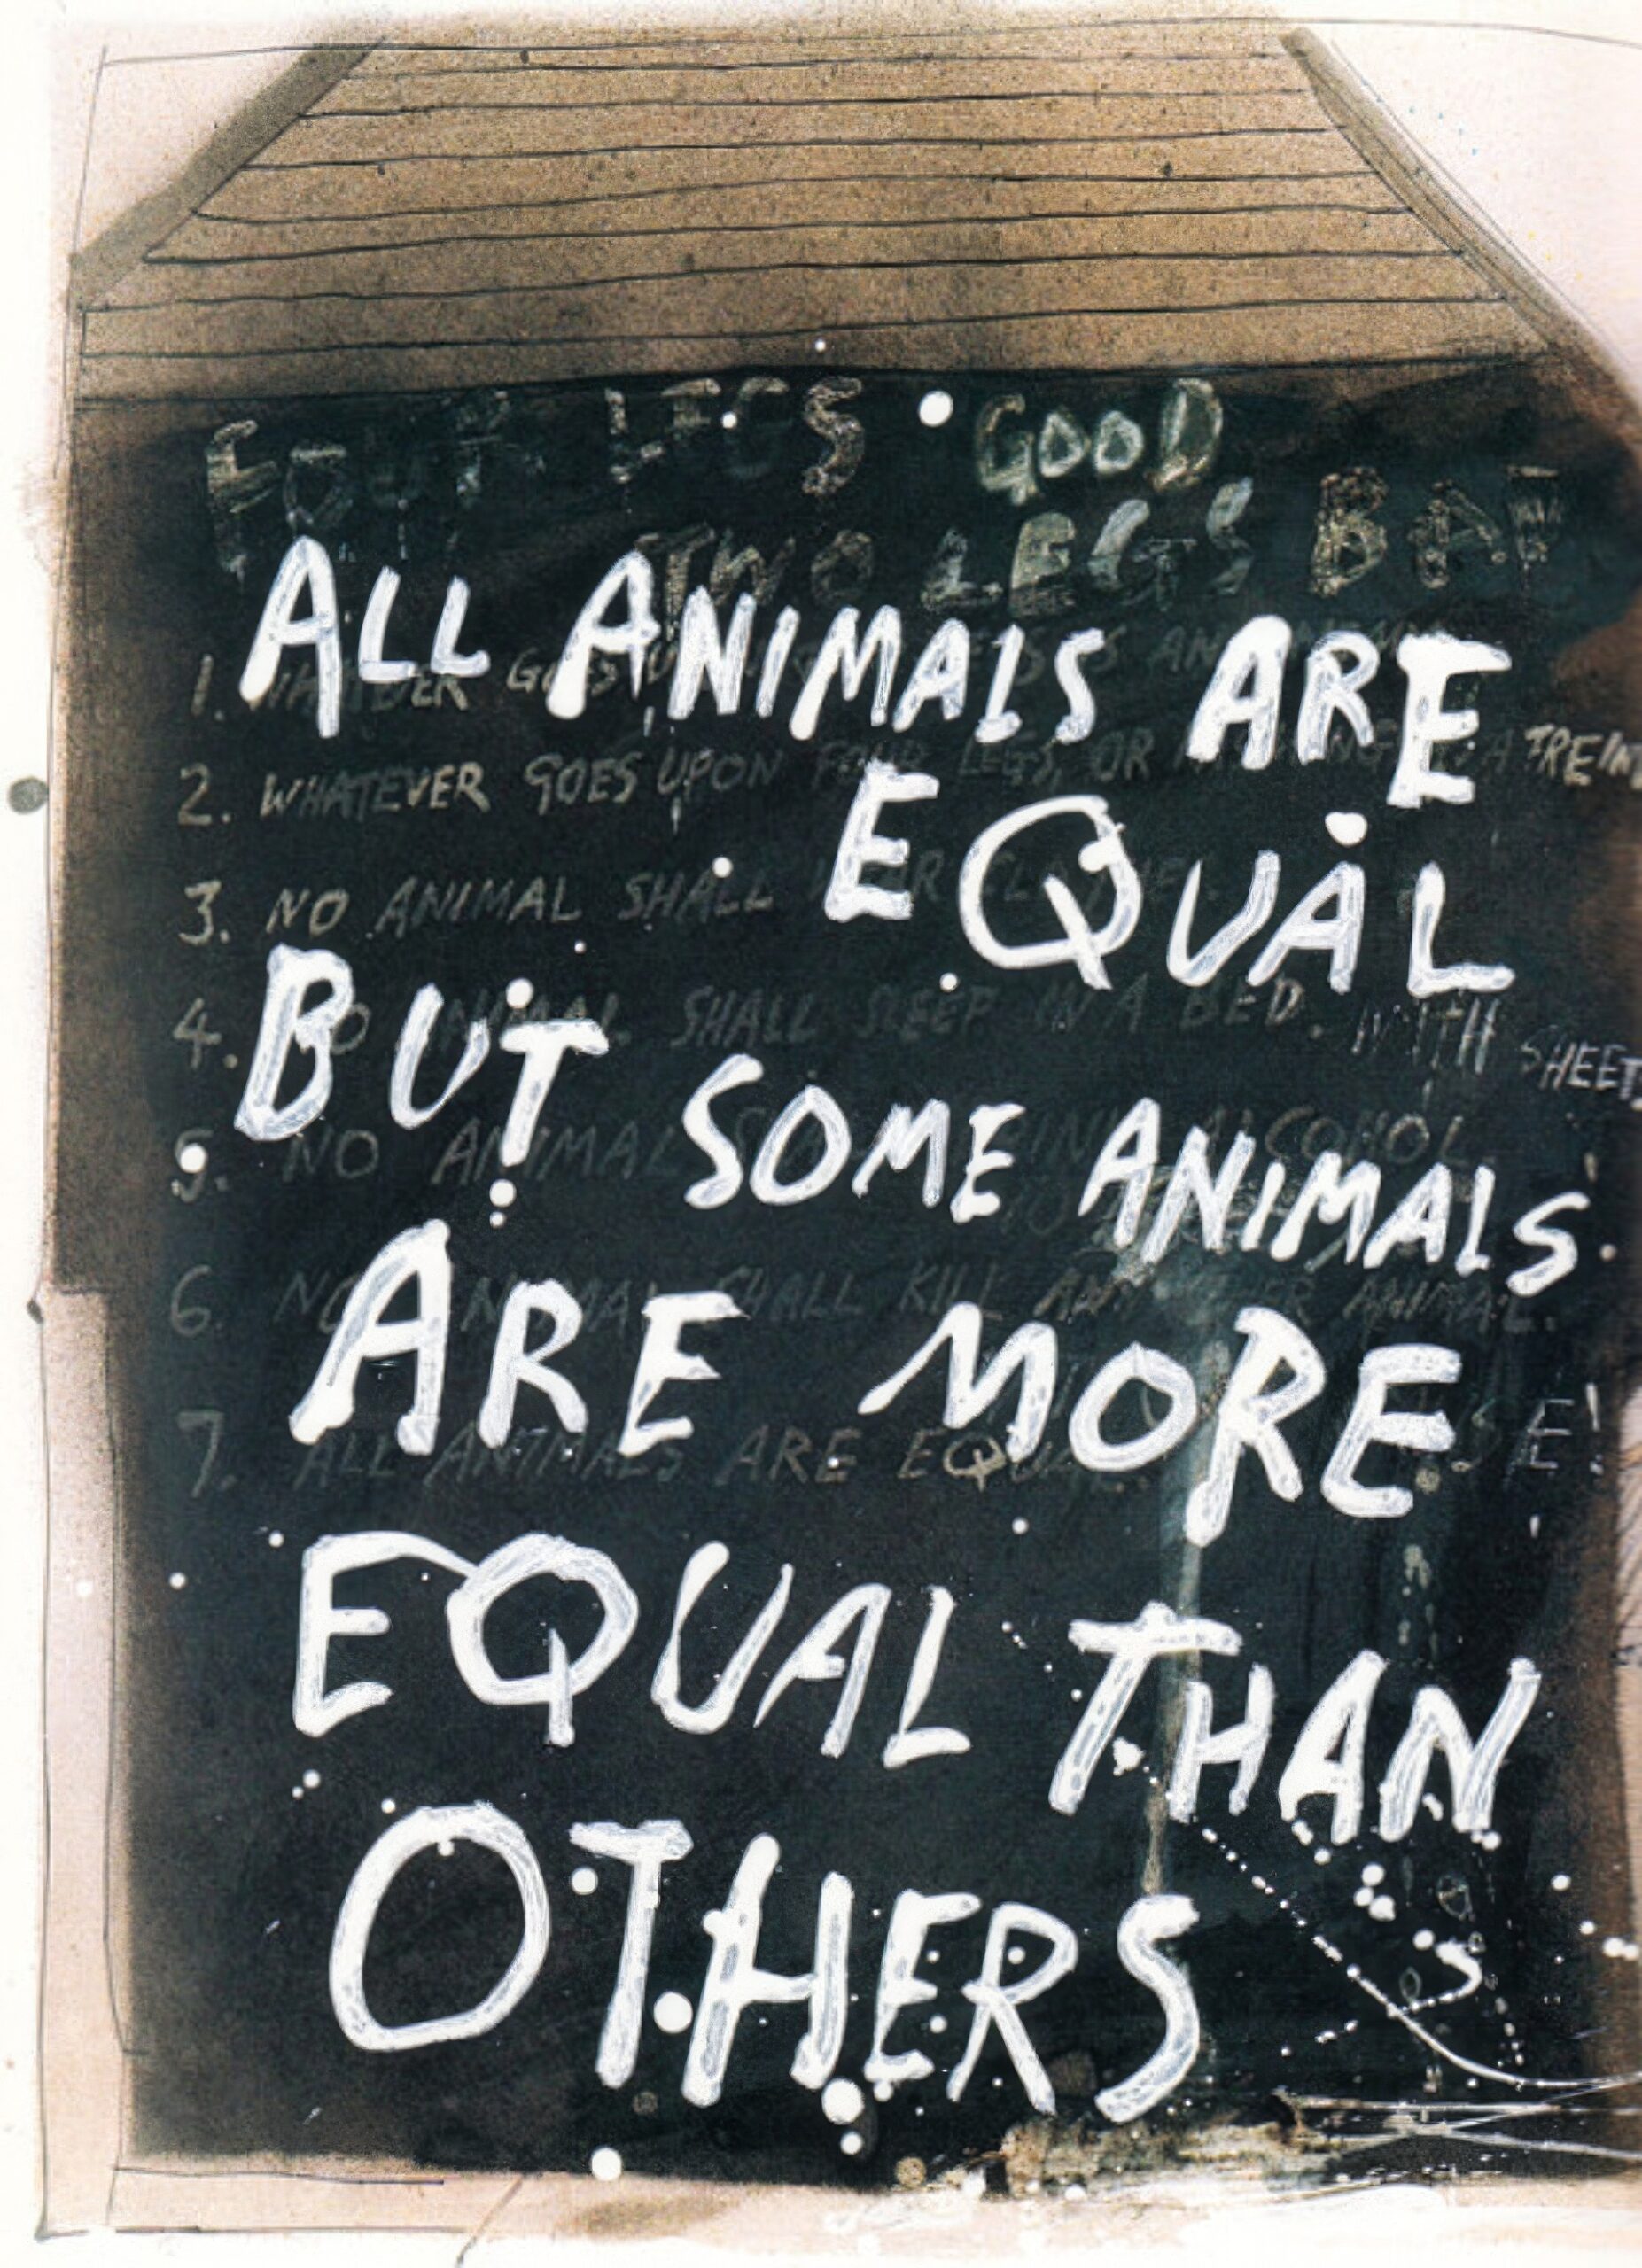 FOUR LEGS GOOD
TWO LEGS BAD
ALL ANIMALS ARE
EQUAL
BUT SOME ANIMALS
ARE MORE
EQUAL THAN
OTHERS
1. GOES
2. WHATEVER GOES UPON FOUR LEGS, OR A
3. NO ANIMAL SHALL
4. NO ANIMAL SHALL SLEEP IN A BED. WITH SHEETS
5. NO ANIMAL ALCOHOL
6 NO ANIMAL SHALL KILL ANY OTHER ANIMAL.
7. ALL ANIMALS ARE EQUAL